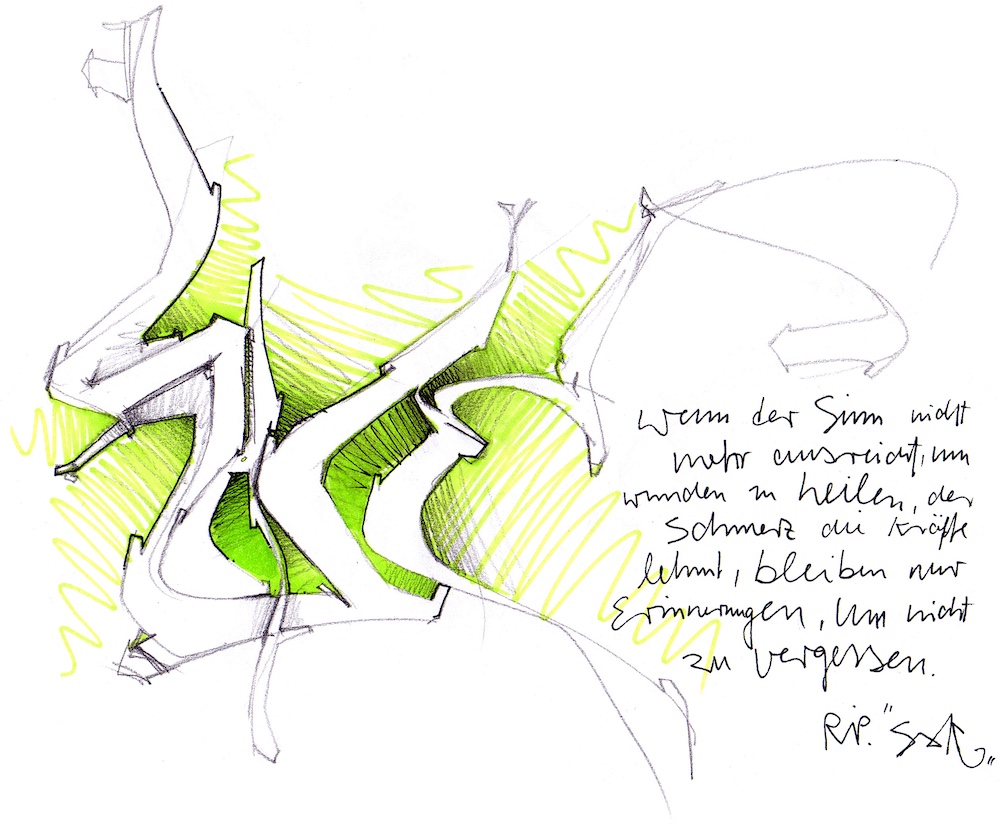 wenn der Sinn nicht
mehr ausreicht, um
wunden zu heilen, der
Schmerz die Kräfte
lehmt, bleiben nur
Erinnerungen, Um nicht
zu vergessen.
R.i.P.